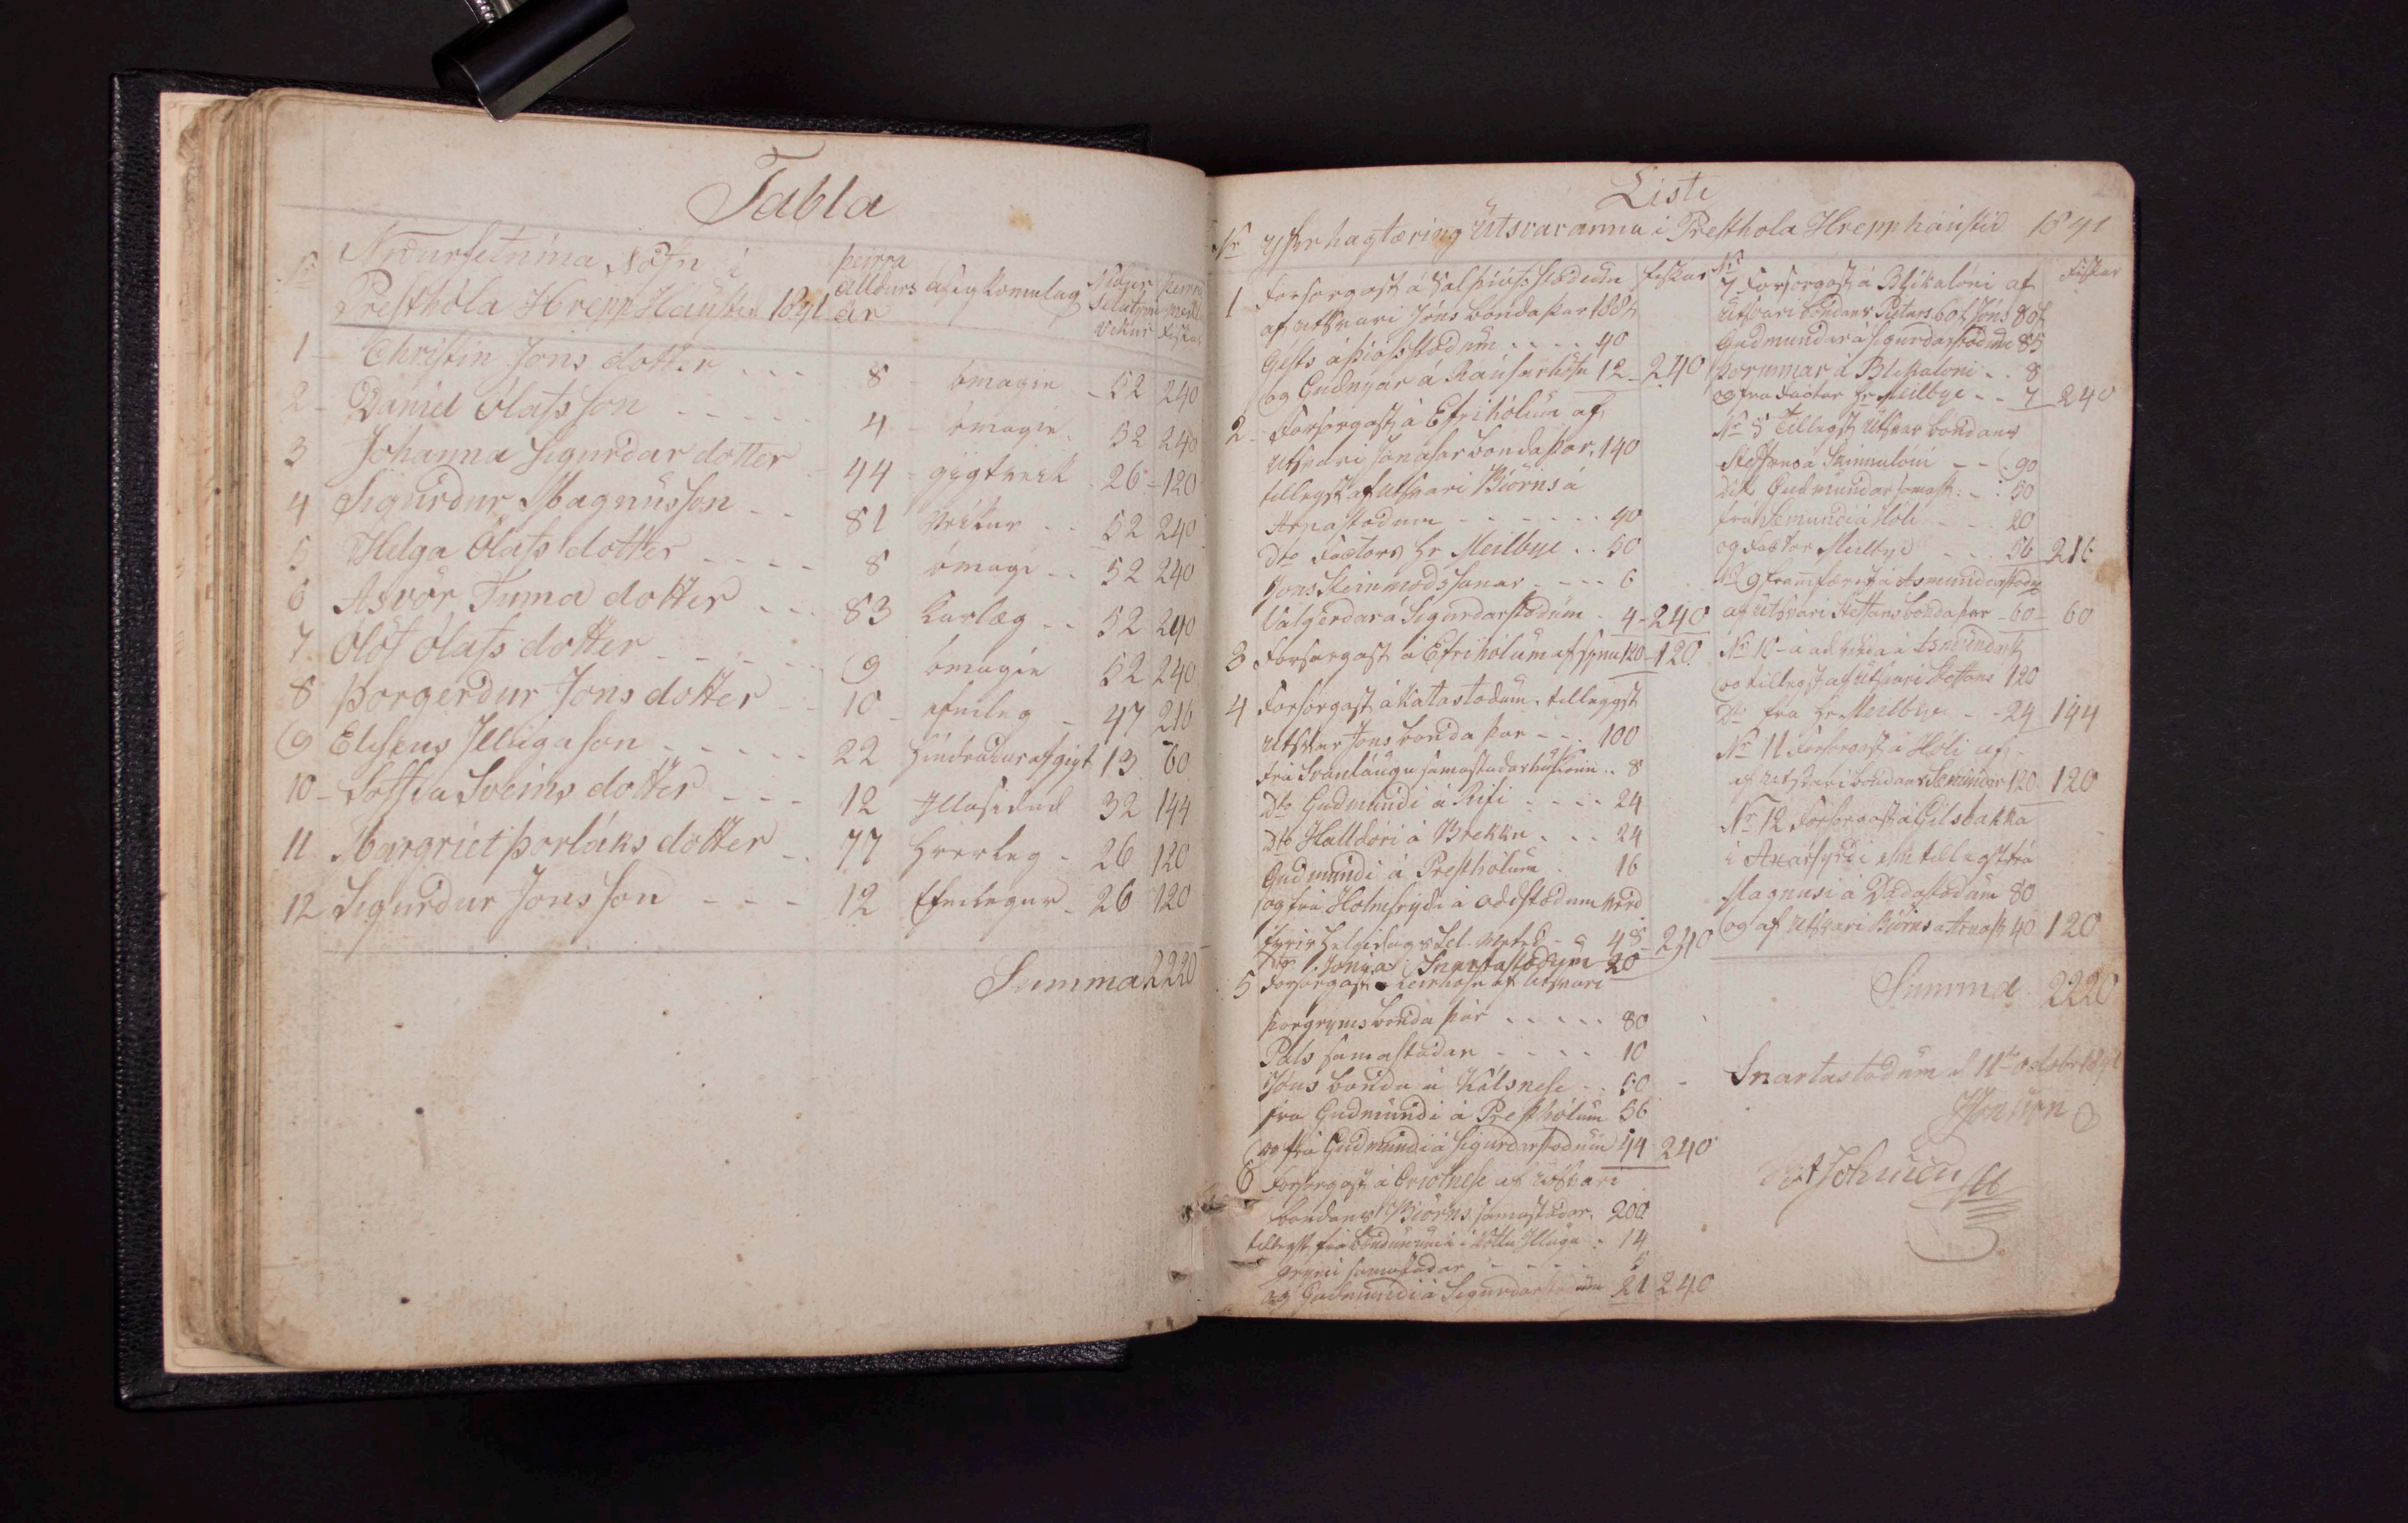 Tabla
Nr Nidursetnina Nöfn i
Presthóla Hrepp Haustid 1841
þeirra alldurs ár
ásigkomulag
Vikur
fiskar
1 Christin Jons dotter - - - 8 - ómagin - 52 240
2 - Daniel Olafsson - - - - 4 - ómagin - 52 240
3 Johanna Sigurdar dotter - 44 - gigtveik - 26 - 120
4 Sigurdur Magnússon - - 81 Veikur - - 52 240
5 Helga Olafs dotter - - - - 8 ómagi - - 52 240
6 Asvör Tuma dotter - - - 83 Karlæg - - 52 240
7 Olöf Olafs dotter - - - - - 9 ómagin 52 240
8 Þorgerdur Jons dotter - - 10 - efnileg - 47 216
9 Eliseus Illhugason - - - - - 22 hindradur af gigt 13 60
10 - Soffia Sveins dotter - - - 12 Illasidud 32 144
11 Margriet þorláks dotter - - 77 hrerleg - 26 120
12 Sigurdur Jonsson - - - 12 Efnilegur - 26 120
Summa 2220
Liste
Nr yfir hagtæring Útsvaranna i Presthola Hrepp haustid 1841
fiskar
1 Forsorgast á Valþiófsstödum
af utsvari Jóns bonda þar 188
Gests á þiofsstödum - - - - 40
og Gudnyar á Raudarhöfn 12 - 240
2 - Forsorgast á Efrihólum af
Utsvari Jónasar bonda þar. 140
tillegst af utsvari Biörns á
Arnastodum - - - - - - 40
Dto Factors hr Meilbye - - 50
Jons Steinmodssonar - - - - 6
Valgerdar á Sigurdarstödum - 4 - 240
3 Forsorgast á Efrihólum af synu 120 - 120
4 Forsorgast á Katastodum. tilleggst
Utsvar Jons bonda þar - - - 100
frá Svanlaugu samastadar - - 8
Dto Gudmundi á Rifi - - - - 24
Dto Halldóri á Brekku - - - 24
Gudmundi á Presthólum - 16
og frá Holmfrydi á Oddstodum verd
fyrir helgidags - 48 - 240
Dto Jóni á Snartastödum 20
5 Forsorgast á Leirhöfn af Utsvari
þorgryms bonda þar - - - - - 80
Páls samastadar - - - - 10
Jóns bonda á Kálsnese - - 50
fra Gudmundi á Presthólum 56
og frá Gudmundi á Sigurdarstodum 44 240
6 Forsorgast á Oriotnese af Utsvari
bondans Biörns samastadar. 200
tillegst frá bondunum i Illuga - 14
samastadar - - - - 5
og Gudmundi á Sigurdarstodum 21 240
Nr 7 Forsorgast á Blikalóni af fiskar
Utsvari bondans Peturs 60 f Jóns 80 f
Gudmundar á Sigurdarstodum 85
þorunnar á Blikalóni - - 8
og fra Factor hr Meilbye - - 7 240
Nr 8 Tillegst Utsvar bondans
Steffans á Skinnalóni - - 90
Gudmundar samast: - - 50
frá Semundi á Hóli - - 20
og Factor Meilbye - - - 56 216
Nr 9 framfærist á Asmundarstodum
af Utsvari Steffans bonda þar - 60 - 60
Nr 10 - á ad á Asmundarst
og tillegst af Utsvari Steffans 120
Dto fra hr Meilbye - - 24 144
Nr 11 Forsorgast á Hóli af
af Utsvari bondans Semundar 120 120
Nr 12 Forsorgast á Gilsbakka
i Axarfyrdi tillegst frá
Magnusi á Dadastödum 80
og af Utsvari Biörns á Arnast 40 120
Summa 2220
Snartastodum d 11te octobr 1841